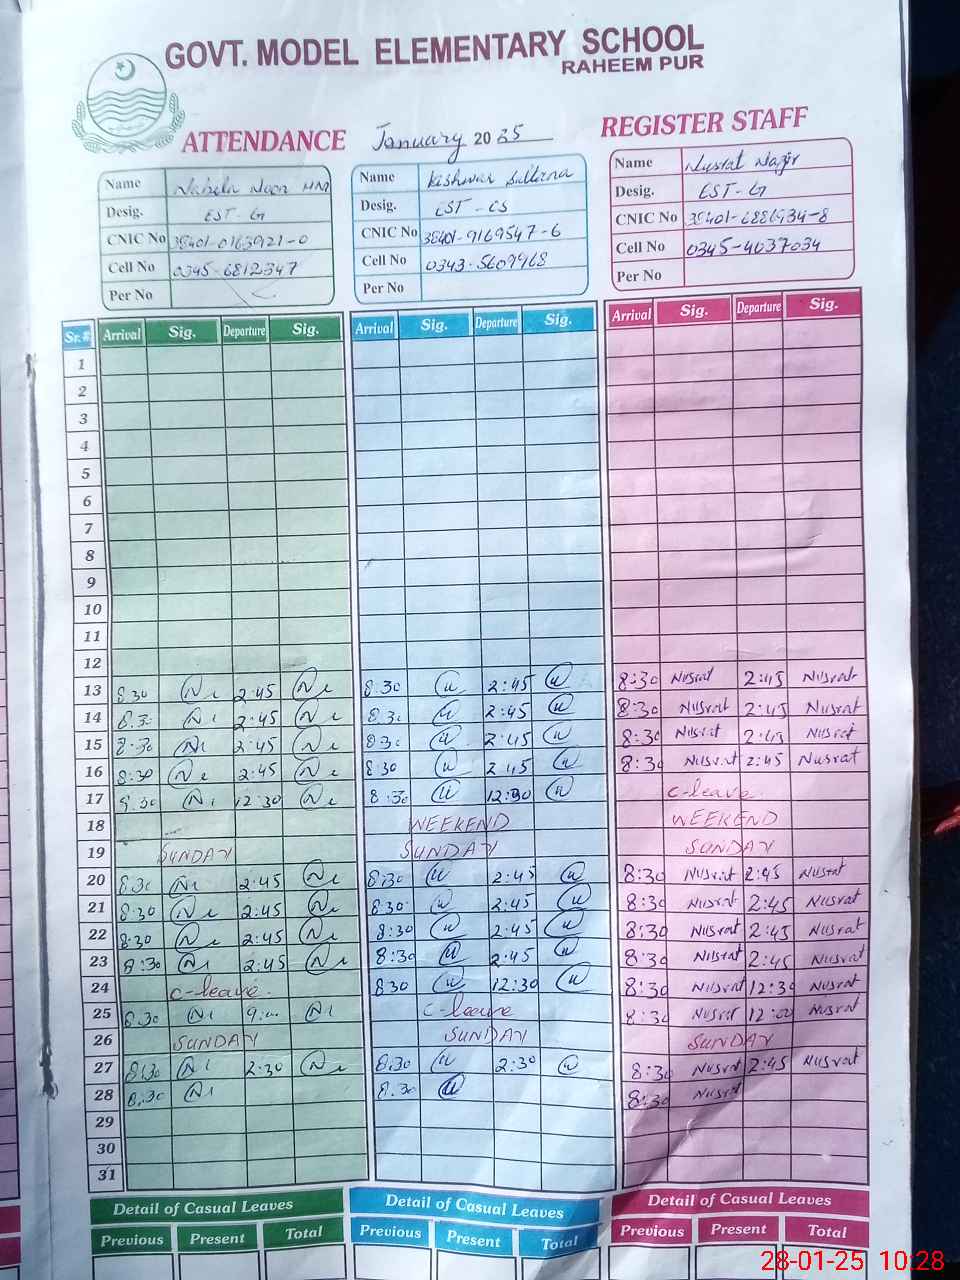 GOVT. MODEL ELEMENTARY SCHOOL
RAHEEM PUR
ATTENDANCE January 2025 REGISTER STAFF
Name Nabila Noor Desig. EST-G CNIC No 38401-0163921-0 Cell No 0345-6812347 Per No
Name Kishwar Sultana Desig. EST-CS CNIC No 38401-9169547-6 Cell No 0343-5609968 Per No
Name Nusrat Nazir Desig. EST-G CNIC No 38401-6886934-8 Cell No 0345-4037034 Per No
Sr.# Arrival Sig. Departure Sig. Arrival Sig. Departure Sig. Arrival Sig. Departure Sig.
1
2
3
4
5
6
7
8
9
10
11
12
13 8:30 2:45 8:30 2:45 8:30 Nusrat 2:45 Nusrat
14 8:30 2:45 8:30 2:45 8:30 Nusrat 2:45 Nusrat
15 8:30 2:45 8:30 2:45 8:30 Nusrat 2:45 Nusrat
16 8:30 2:45 8:30 2:45 8:30 Nusrat 2:45 Nusrat
17 8:30 12:30 8:30 12:30 C-leave
18 WEEKEND WEEKEND
19 SUNDAY SUNDAY SUNDAY
20 8:30 2:45 8:30 2:45 8:30 Nusrat 2:45 Nusrat
21 8:30 2:45 8:30 2:45 8:30 Nusrat 2:45 Nusrat
22 8:30 2:45 8:30 2:45 8:30 Nusrat 2:45 Nusrat
23 8:30 2:45 8:30 2:45 8:30 Nusrat 2:45 Nusrat
24 C-leave 8:30 12:30 8:30 Nusrat 12:30 Nusrat
25 8:30 C-leave 8:30 Nusrat 12:00 Nusrat
26 SUNDAY SUNDAY SUNDAY
27 8:30 2:30 8:30 2:30 8:30 Nusrat 2:45 Nusrat
28 8:30 8:30 8:30 Nusrat
29
30
31
Detail of Casual Leaves Detail of Casual Leaves Detail of Casual Leaves
Previous Present Total Previous Present Total Previous Present Total
28-01-25 10:28